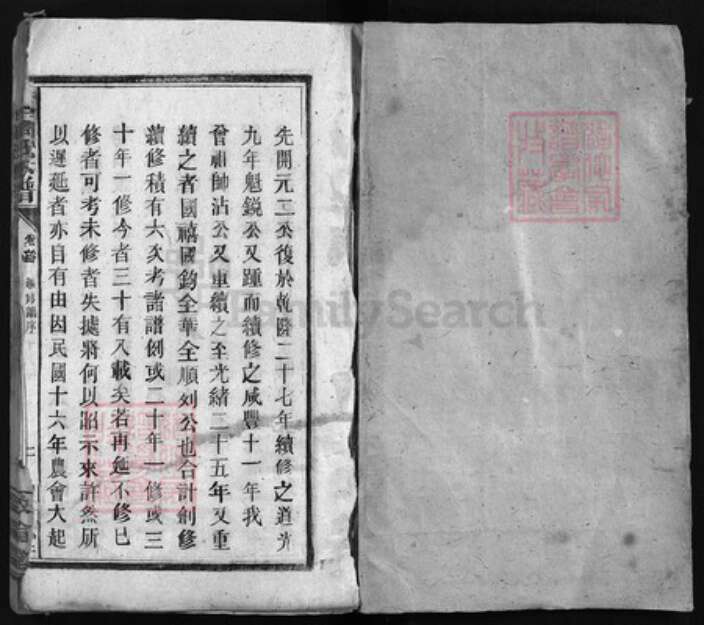 先開元二公復於乾隆二十七年續修之道光
九年魁銳公又踵而續修之咸豐十一年我
曾祖帥沾公又重續之至光緒二十五年又重
續之者國禧國鈞全華全順列公也合計創修
續修積有六次考諸譜例或二十年一修或三
十年一修今者三十有八載矣若再延不修已
修者可考未修者失據將何以昭示來許然所
以遲延者亦自有由因民國十六年農會大起
卷首
FamilySearch